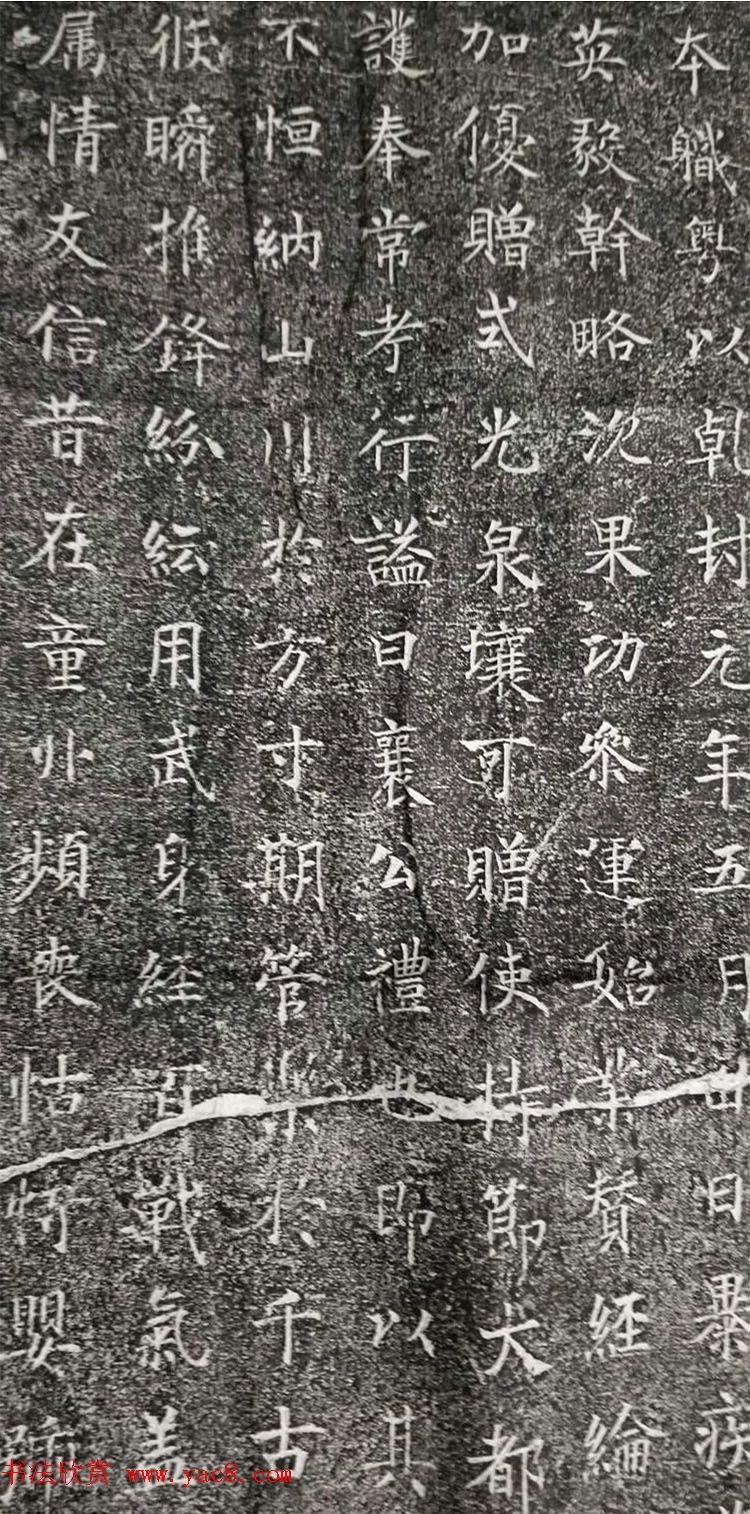 本職粤以乹封元年五月廿日暴疾
英毅幹略沉果功叅運始業贊經綸
加優贈式光泉壤可贈使持節大都
護奉常考行謚曰襄公禮也即以其
不恒納山川於方寸期管樂於千古
瞬推鋒紛紜用武身経百戰氣盖
属情友信昔在童丱頻喪怙恃嬰
书法欣赏 www.yac8.com